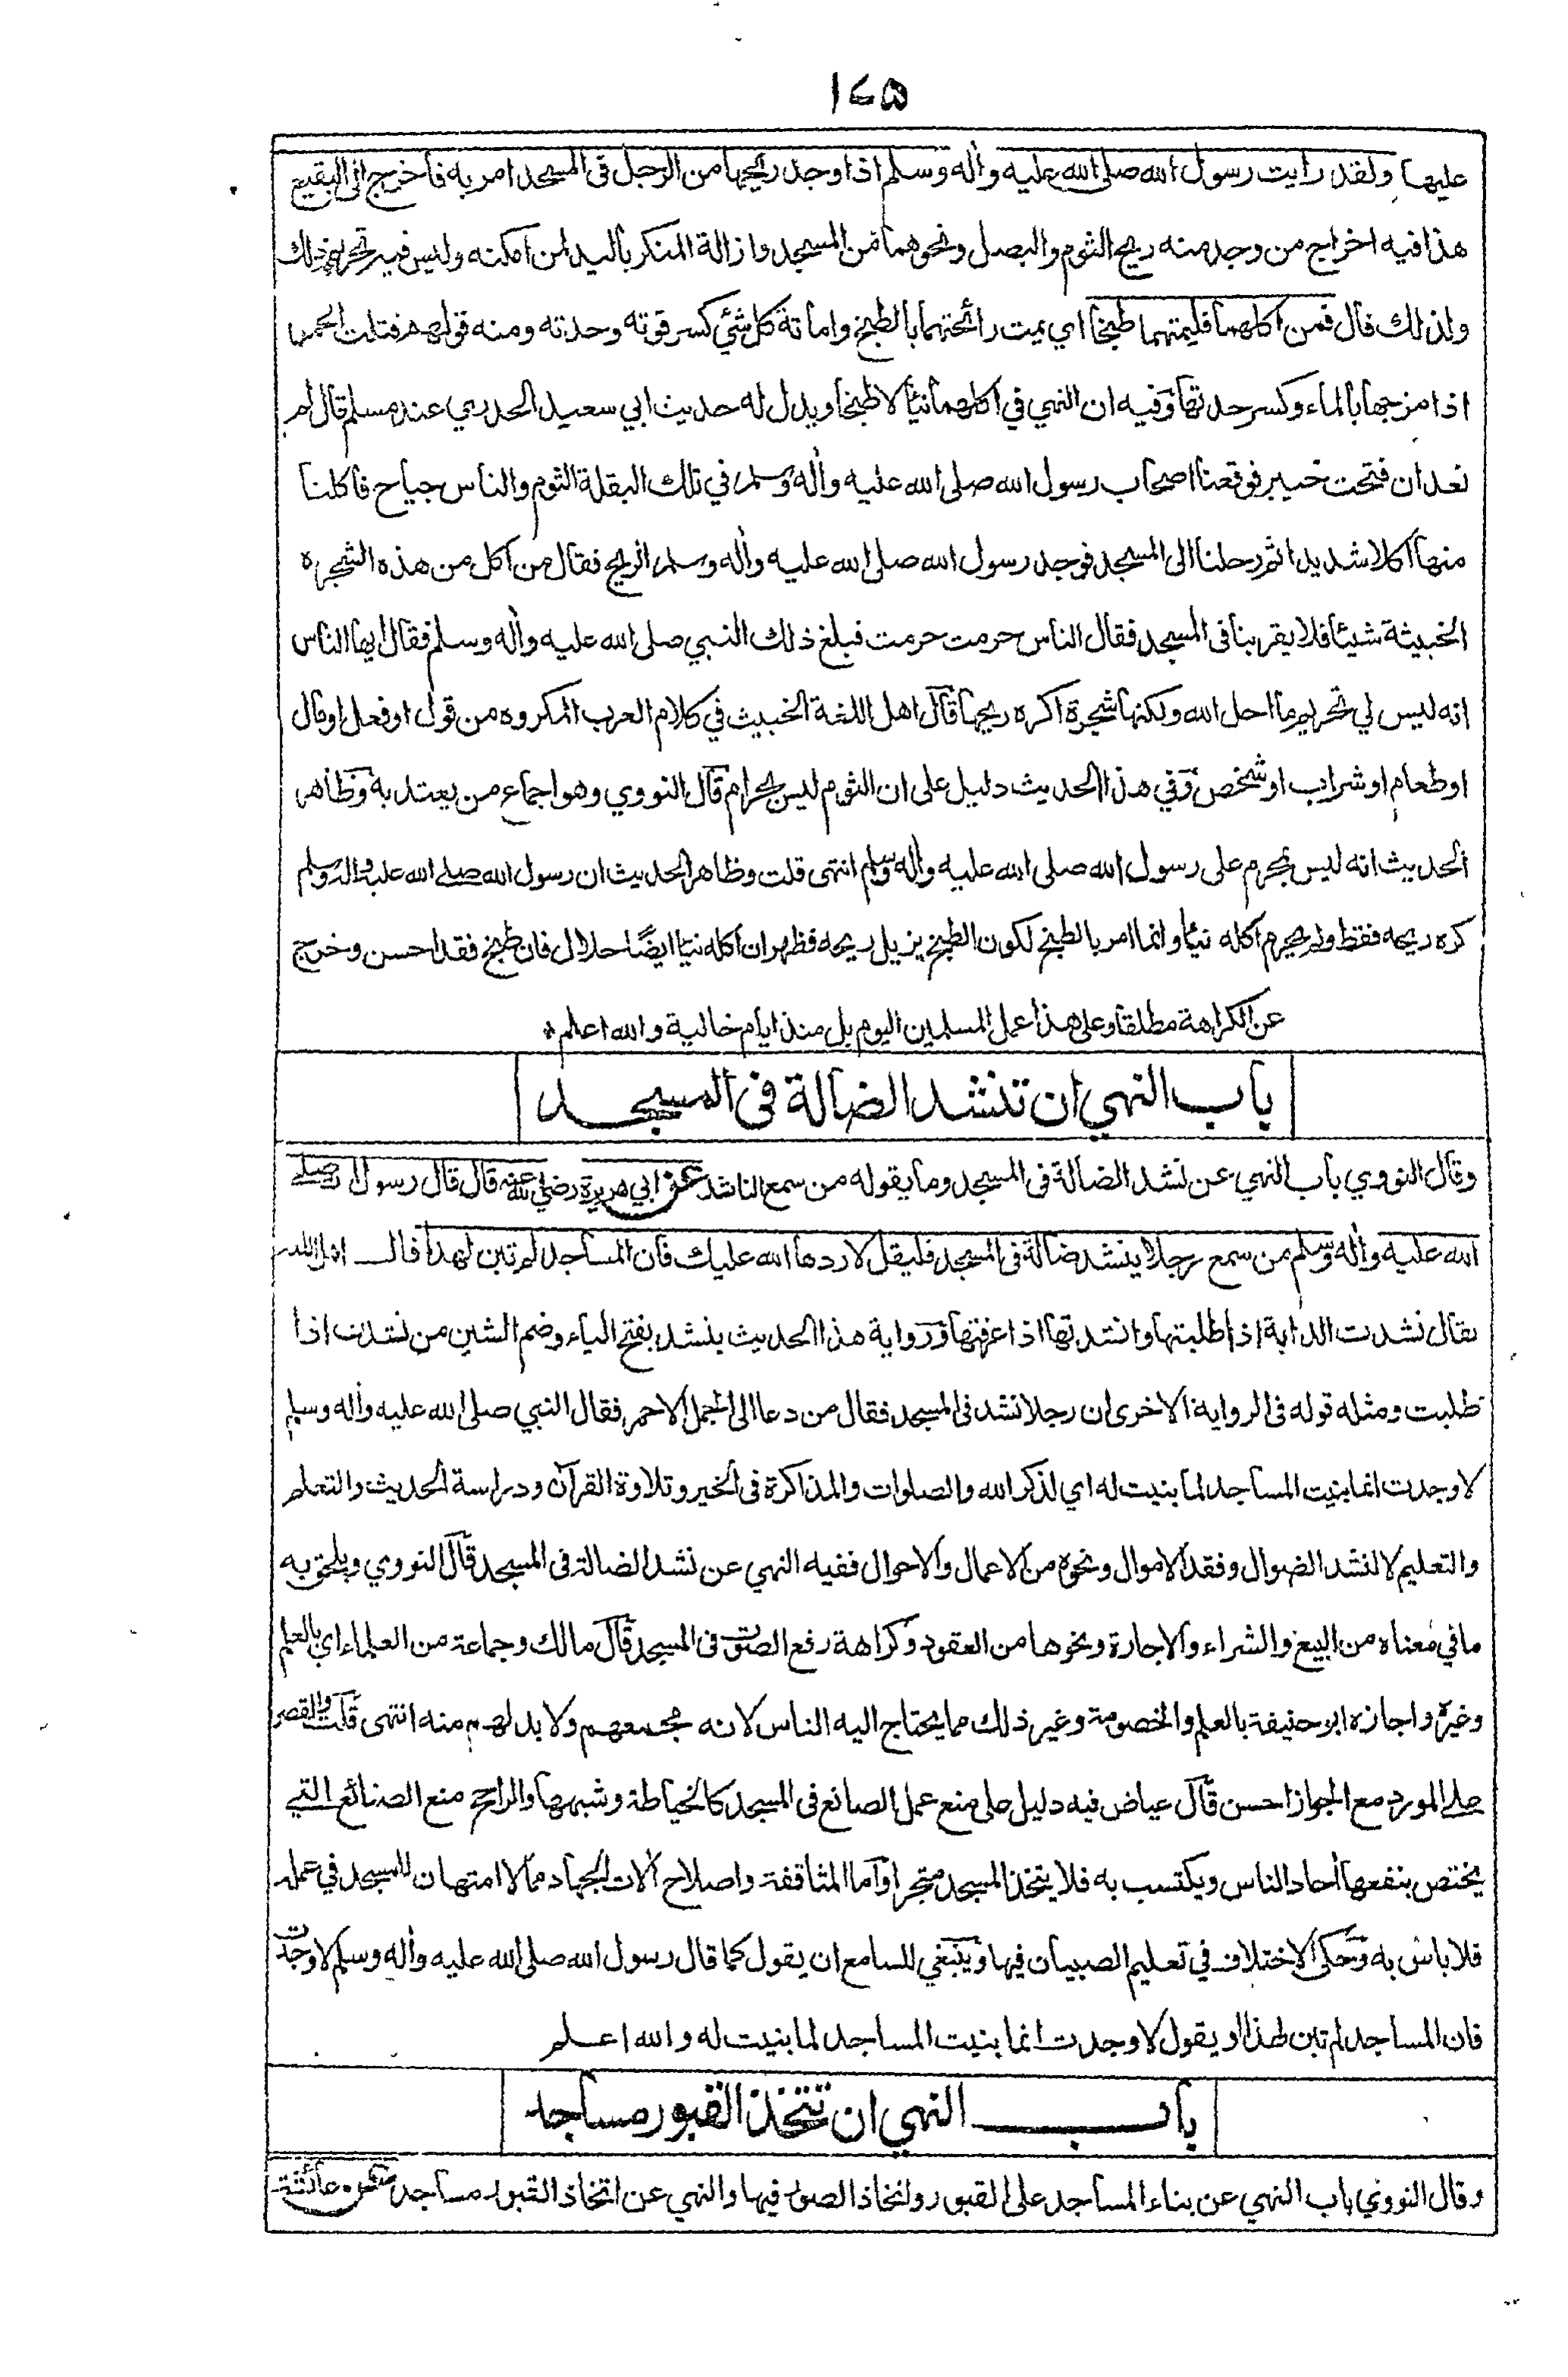 ١٤٥
عليها ولقد رايت رسول الله صلى الله عليه واله وسلم اذا وجد ريحها من الرجل في المسجد امر به فاخرج الى البقيع
هذا فيه اخراج من وجد منه ريح الثوم والبصل ونحوهما من المسجد وازالة المنكر باليد لمن امكنه وليس فيه تحريم ذلك
ولذلك قال فمن اكلهما فليمتهما طبخا اي يمت رائحتهما بالطبخ واماتة كل شئ كسر قوته وحدته ومنه قولهم قتلت الخمر
اذا مزجها بالماء وكسر حدتها وفيه ان النهي في اكلهما نيئا لا طبخا ويدل له حديث ابي سعيد الخدري عند مسلم قال لم
نعد ان فتحت خيبر فوقعنا اصحاب رسول الله صلى الله عليه واله وسلم في تلك البقلة الثوم والناس جياع فاكلنا
منها اكلا شديدا ثم رحلنا الى المسجد فوجد رسول الله صلى الله عليه واله وسلم الريح فقال من اكل من هذه الشجرة
الخبيثة شيئا فلا يقربنا في المسجد فقال الناس حرمت حرمت فبلغ ذلك النبي صلى الله عليه واله وسلم فقال ايها الناس
انه ليس لي تحريم ما احل الله ولكنها شجرة اكره ريحها قال اهل اللغة الخبيث في كلام العرب المكروه من قول او فعل او مال
او طعام او شراب او شخص وفي هذا الحديث دليل على ان الثوم ليس بحرام قال النووي وهو اجماع من يعتد به وظاهر
الحديث انه ليس بمحرم على رسول الله صلى الله عليه واله وسلم انتهى قلت وظاهر الحديث ان رسول الله صلے الله عليه واله وسلم
كره ريحه فقط ولم يحرم اكله نيئا وانما امر بالطبخ لكون الطبخ يزيل ريحه فظهر ان اكله نيئا ايضًا حلال فان طبخ فقد احسن وخرج
عن الكراهة مطلقا وعلى هذا عمل المسلمين اليوم بل منذ ايام خالية والله اعلم
باب النهي ان تنشد الضالة في المسجد
وقال النووي باب النهي عن نشد الضالة في المسجد وما يقوله من سمع الناشد عن ابي هريرة رضي الله عنه قال قال رسول الله صلے
الله عليه واله وسلم من سمع رجلا ينشد ضالة في المسجد فليقل لا ردها الله عليك فان المساجد لم تبن لهذا قال اهل اللغة
يقال نشدت الدابة اذا طلبتها وانشدتها اذا عرفتها ورواية هذا الحديث ينشد بفتح الياء وضم الشين من نشدت اذا
طلبت ومثله قوله في الرواية الاخرى ان رجلا نشد في المسجد فقال من دعا الى الجمل الاحمر فقال النبي صلى الله عليه واله وسلم
لا وجدت انما بنيت المساجد لما بنيت له اي لذكر الله والصلوات والمذاكرة في الخير وتلاوة القرآن ودراسة الحديث والتعلم
والتعليم لا لنشد الضوال وفقد الاموال ونحوه من الاعمال والاحوال ففيه النهي عن نشد الضالة في المسجد قال النووي ويلحق به
ما في معناه من البيع والشراء والاجارة ونحوها من العقود وكراهة رفع الصوت في المسجد قال مالك وجماعة من العلماء اي بالعلم
وغيره واجازه ابو حنيفة بالعلم والخصومة وغير ذلك مما يحتاج اليه الناس لانه مجمعهم ولا بد لهم منه انتهى قلت والقصر
على المورد مع الجواز احسن قال عياض فيه دليل على منع عمل الصانع في المسجد كالخياطة وشبهها والراجح منع الصنائع التي
يختص بنفعها احاد الناس ويكتسب به فلا يتخذ المسجد متجرا واما المثاقفة واصلاح الات الجهاد مما لا امتهان للمسجد في عمله
فلا باس به وحكى الاختلاف في تعليم الصبيان فيها وينبغي للسامع ان يقول كما قال رسول الله صلى الله عليه واله وسلم لا وجدت
فان المساجد لم تبن لهذا او يقول لا وجدت انما بنيت المساجد لما بنيت له والله اعلم
باب النهي ان تتخذ القبور مساجد
وقال النووي باب النهي عن بناء المساجد على القبور واتخاذ الصور فيها والنهي عن اتخاذ القبور مساجد عن عائشة